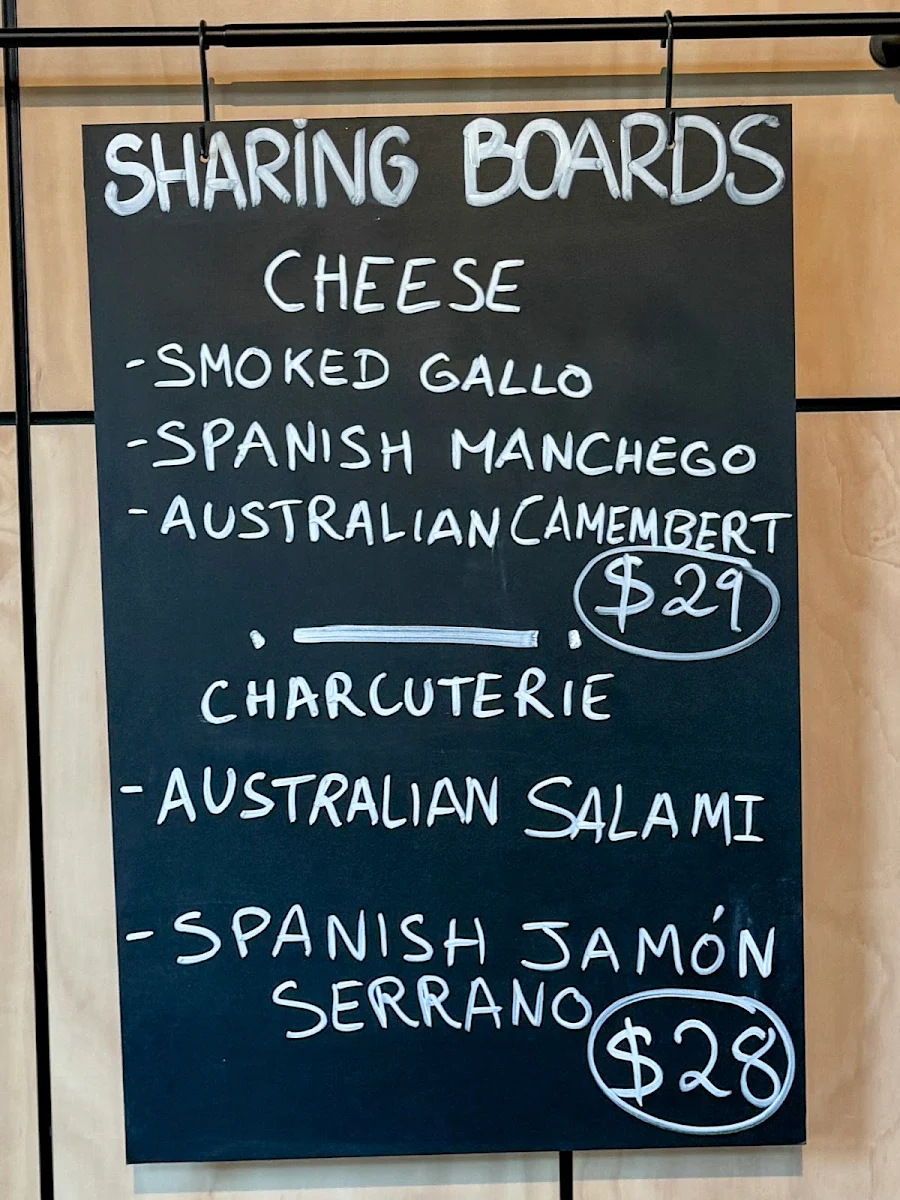 SHARING BOARDS
CHEESE
- SMOKED GALLO
- SPANISH MANCHEGO
- AUSTRALIAN CAMEMBERT
$29
CHARCUTERIE
- AUSTRALIAN SALAMI
- SPANISH JAMÓN
SERRANO
$28